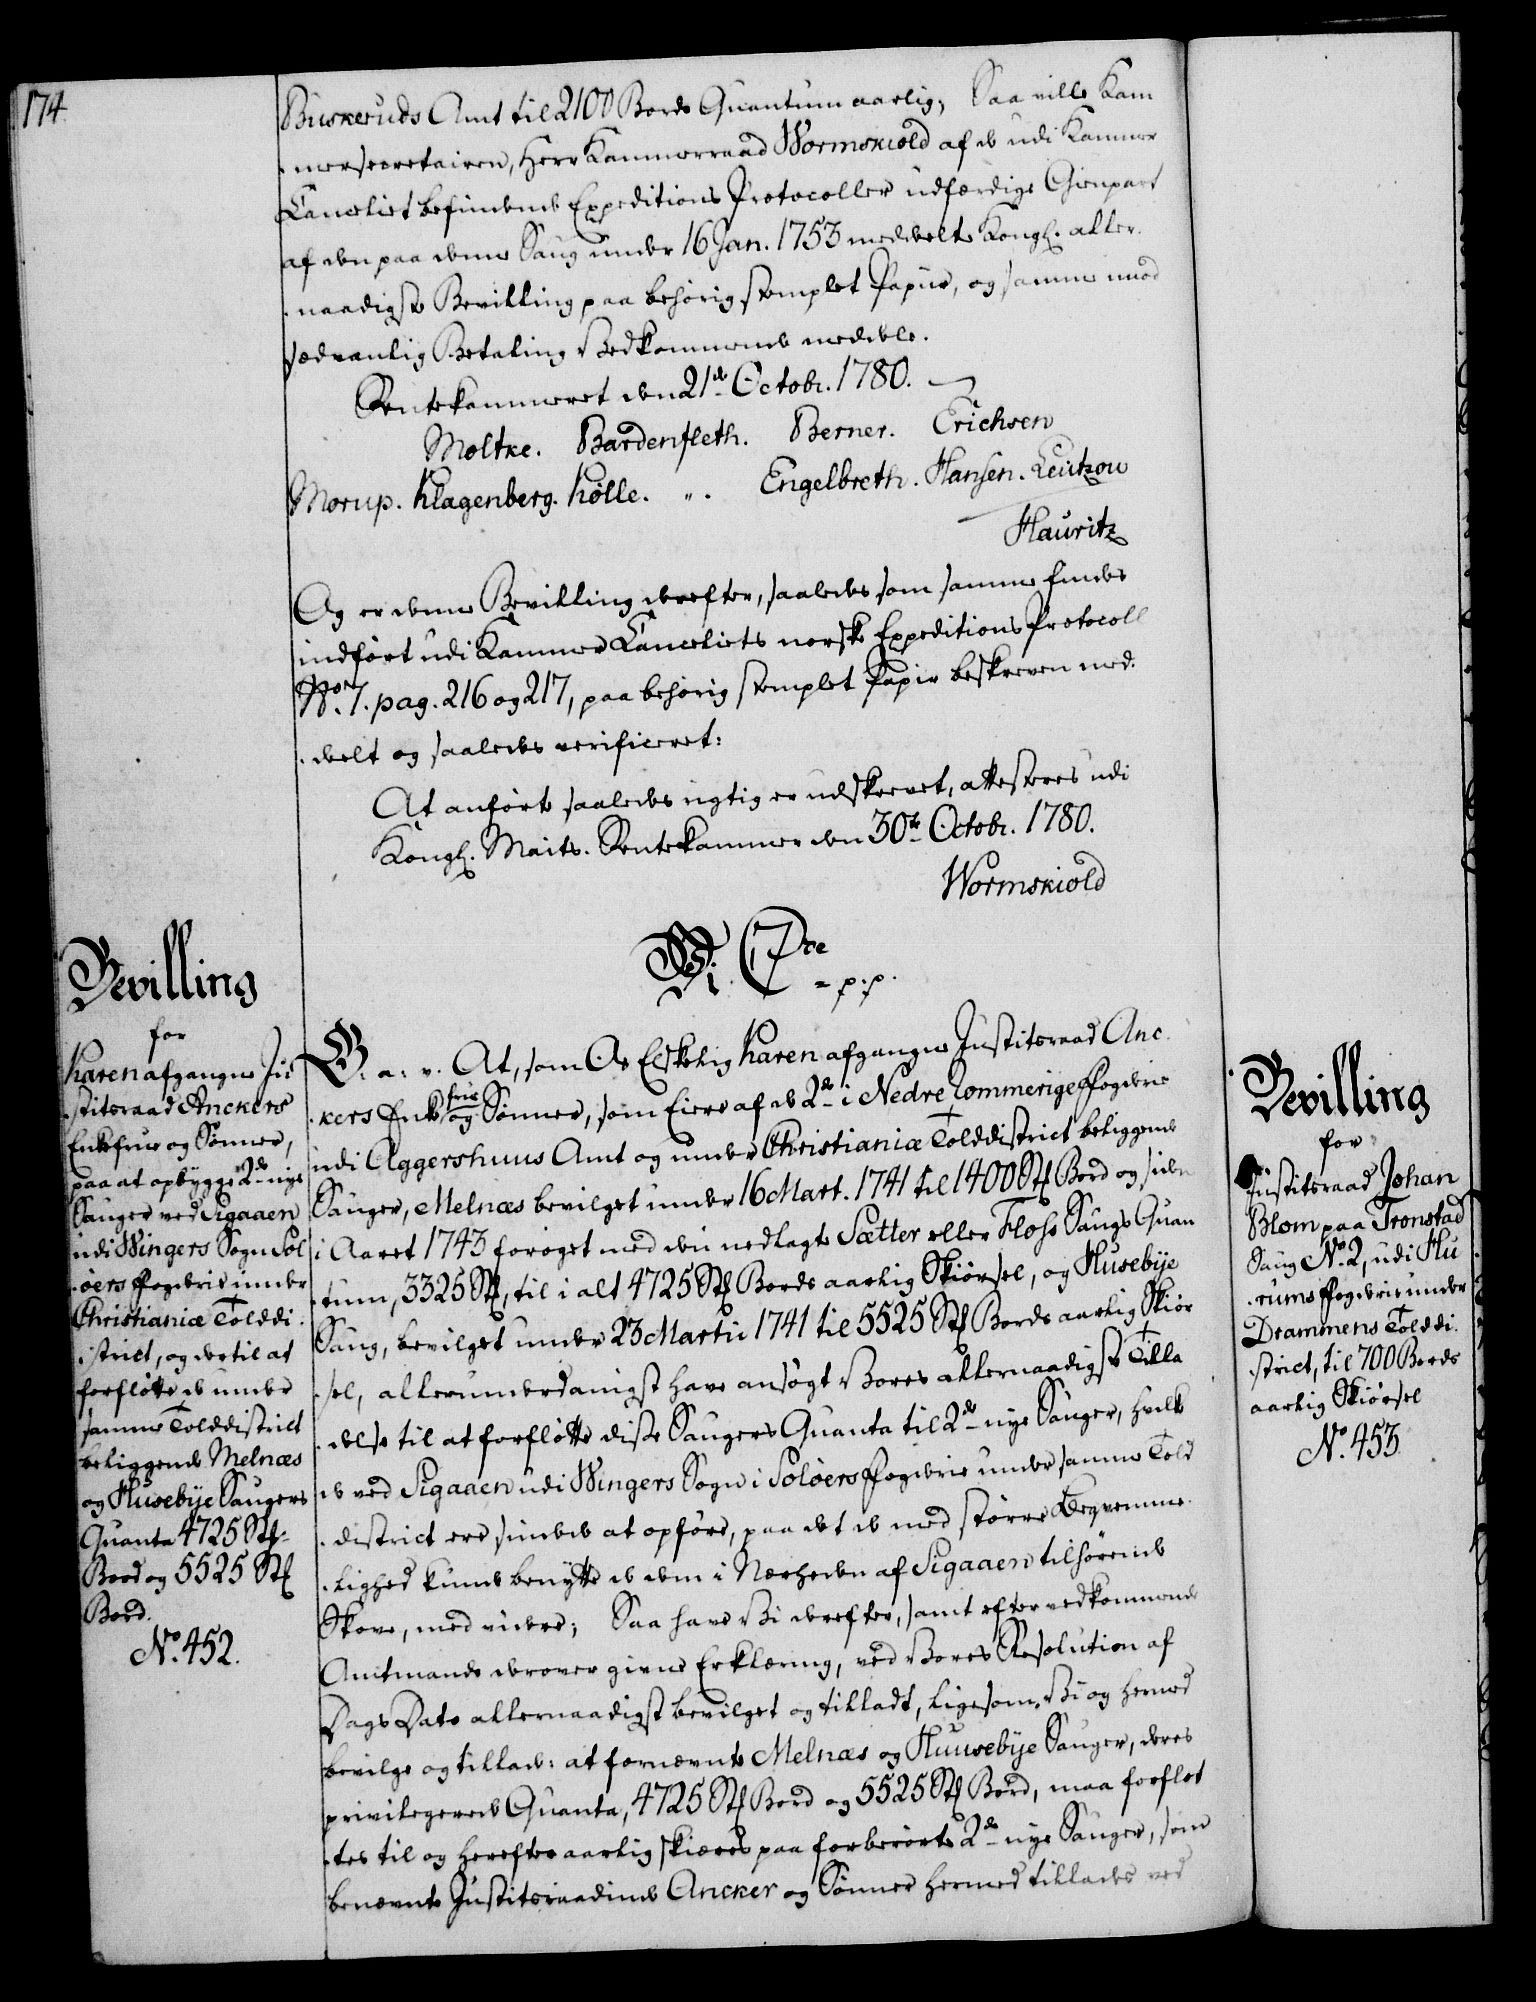 174.
Buskeruds Amt til 2100 Bords Quantum aarlig; Saa ville Kam
mersecretairen, Herr Kammerraad Wormskiold af de udi Kammer
Cancelliet befindende Expeditions Protocoller udfærdige Gienpart
af den paa denne Saug under 16 Jan. 1753 meddelte Kongl. aller
naadigste Bevilling paa behørig stemplet Papiir, og samme mod
sædvanlig Betaling Vedkommende meddele.
Rentekammeret den 21de Octobr. 1780.
Moltke. Bardenfleth. Berner. Erichsen
Morup. Klagenberg. Kølle. „. Engelbreth. Hansen. Leützou
Hauritz
Og er denne Bevilling derefter, saaledes som samme findes
indført udi Kammer Cancelliets norske Expeditions Protocoll
No. 7. pag. 216 og 217, paa behørig stemplet Papir beskreven med
deelt og saaledes verificeret:
At anførte saaledes rigtig er udskrevet, attesteres udi
Kongl. Maits. Rentekammer den 30te Octobr. 1780.
Wormskiold
Bevilling
for
Karen afgangne Ju
stitsraad Anckers
Enkefrue og Sønner,
paa at opbygge 2de nye
Sauger ved Sigaaen
udi Wingers Sogn Sol
øers Fogderie under
Christianiæ Tolddi
strict, og dertil at
forfløtte de under
samme Tolddistrict
beliggende Melnæs
og Husebÿe Saugers
Quanta 4725 Stk
Bord og 5525 Stk
Bord.
No. 452.
Vi C 7de
= p:p.
G. a. v. At, som Os Elskelig Karen afgangne Justitsraad Anc
kers Enke frue og Sønner, som Eiere af de 2de i Nedre Rommerige Fogderie
udi Aggershuus Amt og under Christianiæ Tolddistrict beliggende
Sauger, Melnæs bevilget under 16 Mart. 1741 til 1400 Stk Bord og siden
i Aaret 1743 forøget med den nedlagte Sætter eller Floss Saugs Quan
tum, 3325 Stk, til i alt 4725 Stk Bords aarlig Skiørsel, og Husebÿe
Saug, bevilget under 23 Martii 1741 til 5525 Stk Bords aarlig Skiør
sel, allerunderdanigst have ansøgt Vores allernaadigste Tilla
delse til at forfløtte disse Saugers Quanta til 2de nye Sauger, hvilke
de ved Sigaaen udi Wingers Sogn i Soløers Fogderie under samme Told
district ere sindede at opføre, paa det de med større Beqvemme
lighed kunde benytte de dem i Nærheden af Sigaaen tilhørende
Skove, med videre; Saa have Vi derefter, samt efter vedkommende
Amtmands derover givne Erklæring, ved Vores Resolution af
Dags Dato allernaadigst bevilget og tilladt, ligesom Vi og hermed
bevilge og tillade: at fornævnte Melnæs og Huusebÿe Sauger, deres
privilegerede Quanta, 4725 Stk Bord og 5525 Stk Bord, maa forfløt
tes til og herefter aarlig skiæres paa forberørte 2de nye Sauger, som
benævnte Justitsraadinde Ancker og Sønner hermed tillades ved
Bevilling
for
Justitsraad Johan
Blom paa Tronstad
Saug No. 2, udi Hu
rums Fogderie under
Drammens Tolddi
strict, til 700 Bords
aarlig Skiørsel
No. 453